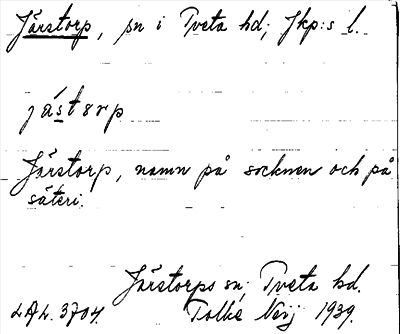 Järstorp, sn i Tveta hd; Jkp:s l.
jástorp
Järstorp, namn på socknen och på
säteri.
Järstorps sn, Tveta hd.
LAL. 3704. Tolle Neij 1939.